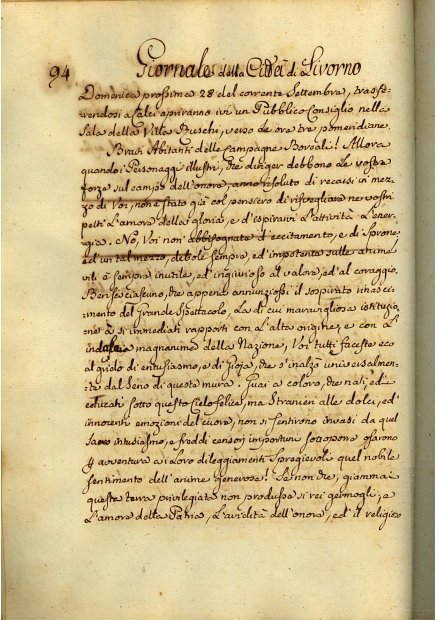 94
Giornale della Città di Livorno
Domenica prossima 28 del corrente Settembre, trasfe-
rendosi a Calci apriranno ivi un Pubblico Consiglio nella
Sala della Villa Ruschi, verso le ore tre pomeridiane.
Bravi Abitanti delle Campagne Boreali! Allora
quando i Personaggi illustri, che diriger debbono le vostre
forze sul campo dell'onore, anno risoluto di recarsi in mez-
zo di Voi, non è stato già col pensiero di risvegliare ne vostri
petti l'amore della gloria, e d'ispirarvi l'attività, l'ener-
gia. No, Voi non abbisognate d'eccitamento, e di sprone,
ed un tal mezzo, debole sempre, ed impotente sulle anime
vili è sempre inutile, ed ingiurioso al valore, ed al coraggio.
Ben lo sa ciascuno, che appena annunziossi il sospirato rinasci-
mento del Grande Spettacolo, la di cui maravigliosa istituzio-
ne à si immediati rapporti con l'alta origine, e con l'
indole magnanima della Nazione, Voi tutti faceste eco
al grido di entusiasmo, e di gioja, che s'inalzò universalmen-
te dal seno di queste mura. Guai a coloro, che nati, ed
educati sotto questo Cielo felice, ma stranieri alle dolci, ed
innocenti emozioni del cuore, non si sentirono invasi da quel
sacro intusiasmo, e freddi censori importuni sottoporre osarono
p avventura ai loro dileggiamenti spregievoli quel nobile
sentimento dell'anime generose! Se non che, giammai
questa terra privilegiata non produsse sì rei germogli, e
l'amore della Patria, l'avidità dell'onore, ed il religioso